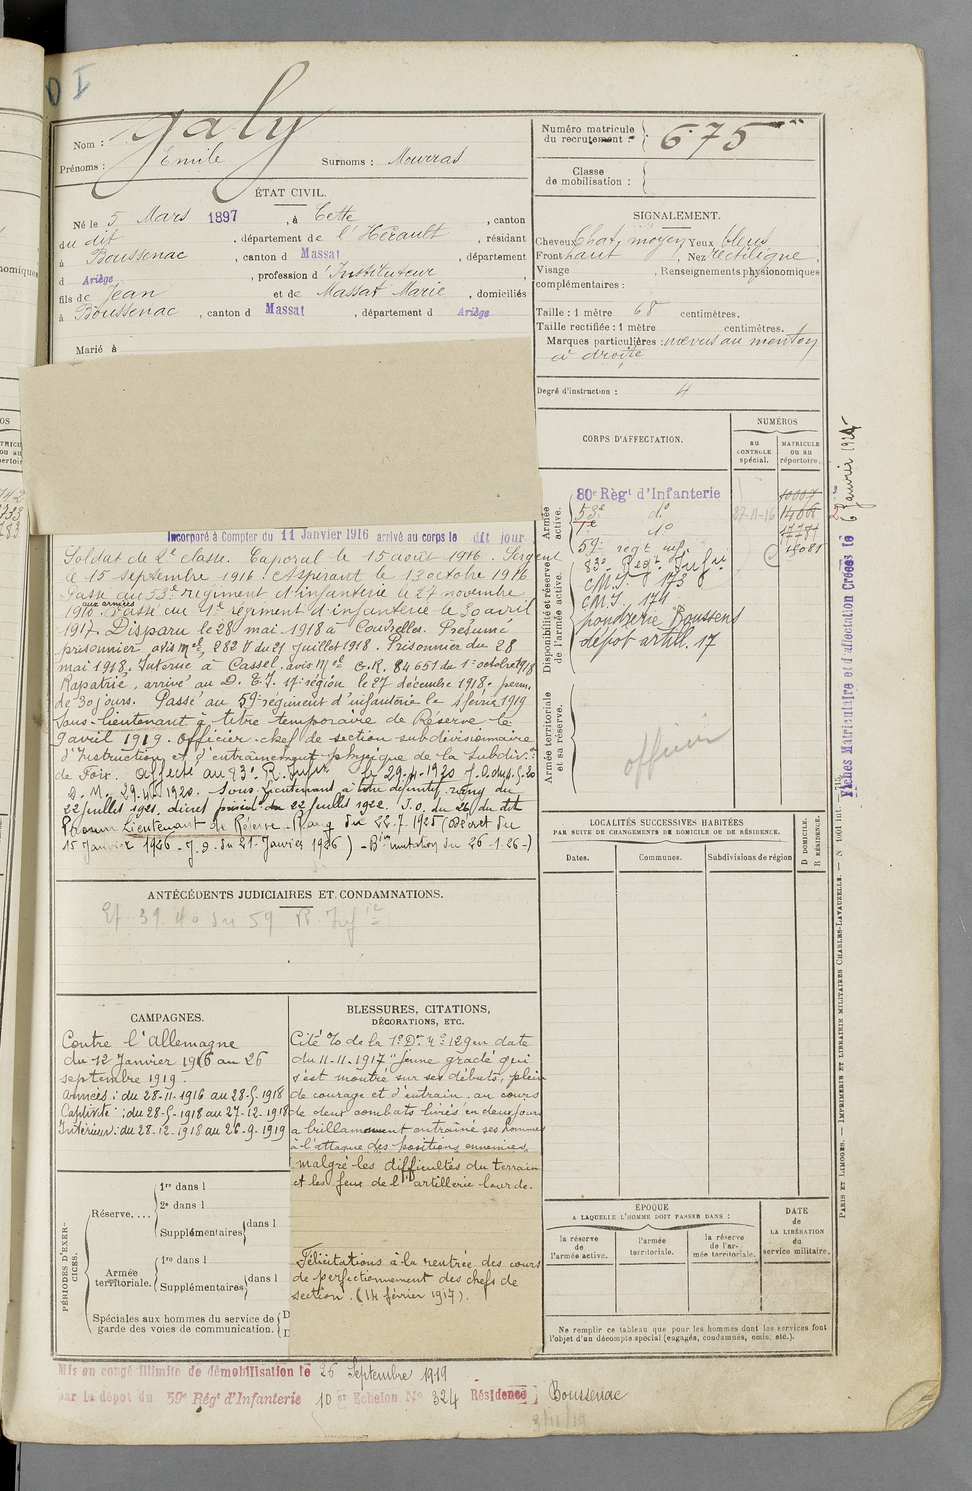 I
Nom : Galy
Prénoms : Emile Surnoms : Mouras
Numéro matricule du recrutement : 675
Classe de mobilisation :
ÉTAT CIVIL.
Né le 5 Mars 1897, à Cette, canton
du dit, département de l'Hérault, résidant
à Boussenac, canton d Massat, département
d Ariège, profession d'Instituteur
fils de Jean et de Massat Marie, domiciliés
à Boussenac, canton d Massat, département d Ariège
Marié à
SIGNALEMENT.
Cheveux Chat. moyen Yeux bleus
Front haut, Nez rectiligne,
Visage , Renseignements physionomiques
complémentaires :
Taille : 1 mètre 68 centimètres.
Taille rectifiée : 1 mètre centimètres.
Marques particulières : nævus au menton
à droite
Degré d'instruction : 4
CORPS D'AFFECTATION.
NUMÉROS
AU CONTROLE spécial.
MATRICULE OU AU répertoire.
Armée active.
80e Régt d'Infanterie
53e do 27-11-16
1e do
59e regt inf.
Disponibilité et réserve de l'armée active.
83e Regt Infie
CM.I. 173
CM.I. 174
poudrerie Boussens
dépot artill. 17
Armée territoriale et sa réserve.
officier
Incorporé à Compter du 11 Janvier 1916 arrivé au corps le dit jour
Soldat de 2e classe. Caporal le 15 août 1916. Sergent
le 15 septembre 1916. Aspirant le 13 octobre 1916.
Passé au 53e regiment d'infanterie le 27 novembre
1916 aux armées. Passé au 1er régiment d'infanterie le 30 avril
1917. Disparu le 28 mai 1918 à Couvrelles. Présumé
prisonnier avis mel 282 V du 21 juillet 1918. Prisonnier du 28
mai 1918. Interné à Cassel. avis Mel C.R. 84651 du 1er octobre 1918
Rapatrié, arrivé au D. E. I. 17e région le 27 décembre 1918. perm.
de 30 jours. Passé au 59e régiment d'infanterie le 1 févrir 1919
Sous-lieutenant à titre temporaire de Réserve le
9 avril 1919. Officier chef de section subdivisionnaire
d'Instruction et d'entraînement physique de la Subdivon
de Foix. Affecté au 83e R. Infie le 29-4-1920
D. M. 29-4-1920. Sous Lieutenant à titre définitif rang du
22 juillet 1921, décret du 22 juillet 1922. J.O. du 26 du dit
Promu Lieutenant de Réserve - Rang du 22-7-1925 (Décret du
15 Janvier 1926 - J.O. du 21 Janvier 1926) - Bin mutation du 26-1-26-)
LOCALITÉS SUCCESSIVES HABITÉES
PAR SUITE DE CHANGEMENTS DE DOMICILE OU DE RÉSIDENCE.
Dates. Communes. Subdivisions de région
D DOMICILE. R RÉSIDENCE.
ANTÉCÉDENTS JUDICIAIRES ET CONDAMNATIONS.
Et 39.40 du 59 R. Infie
CAMPAGNES.
Contre l'Allemagne
du 12 Janvier 1916 au 26
septembre 1919.
Armées : du 28-11-1916 au 28-5-1918
Captivité : du 28-5-1918 au 27-12-1918
Intérieur : du 28-12-1918 au 26-9-1919
BLESSURES, CITATIONS,
DÉCORATIONS, ETC.
Cité % de la 1e Don no 129 en date
du 11-11-1917 "Jeune gradé qui
s'est montré sur ses débuts, plein
de courage et d'entrain, au cours
de deux combats livrés en deux jours
a brillamment entraîné ses hommes
à l'attaque des positions ennemies,
malgré les difficultés du terrain
et les feux de l'artillerie lourde.
Félicitations à la rentrée des cours
de perfectionnement des chefs de
section. (14 février 1917).
PÉRIODES D'EXERCICES.
Réserve....
1re dans l
2e dans l
Supplémentaires dans l
Armée territoriale.
1re dans l
Supplémentaires dans l
Spéciales aux hommes du service de
garde des voies de communication.
D
D
ÉPOQUE
A LAQUELLE L'HOMME DOIT PASSER DANS :
la réserve de l'armée active.
l'armée territoriale.
la réserve de l'armée territoriale.
DATE de LA LIBÉRATION du service militaire.
Ne remplir ce tableau que pour les hommes dont les services font
l'objet d'un décompte spécial (engagés, condamnés, omis, etc.).
Mis en congé illimité de démobilisation le 26 Septembre 1919
par le dépot du 59e Régt d'Infanterie 10 er Echelon No 324 Résidence Boussenac
Fiches Matriculaire et d'affectation Créées le 6 Janvier 1925
PARIS ET LIMOGES. — IMPRIMERIE ET LIBRAIRIE MILITAIRES CHARLES-LAVAUZELLE.